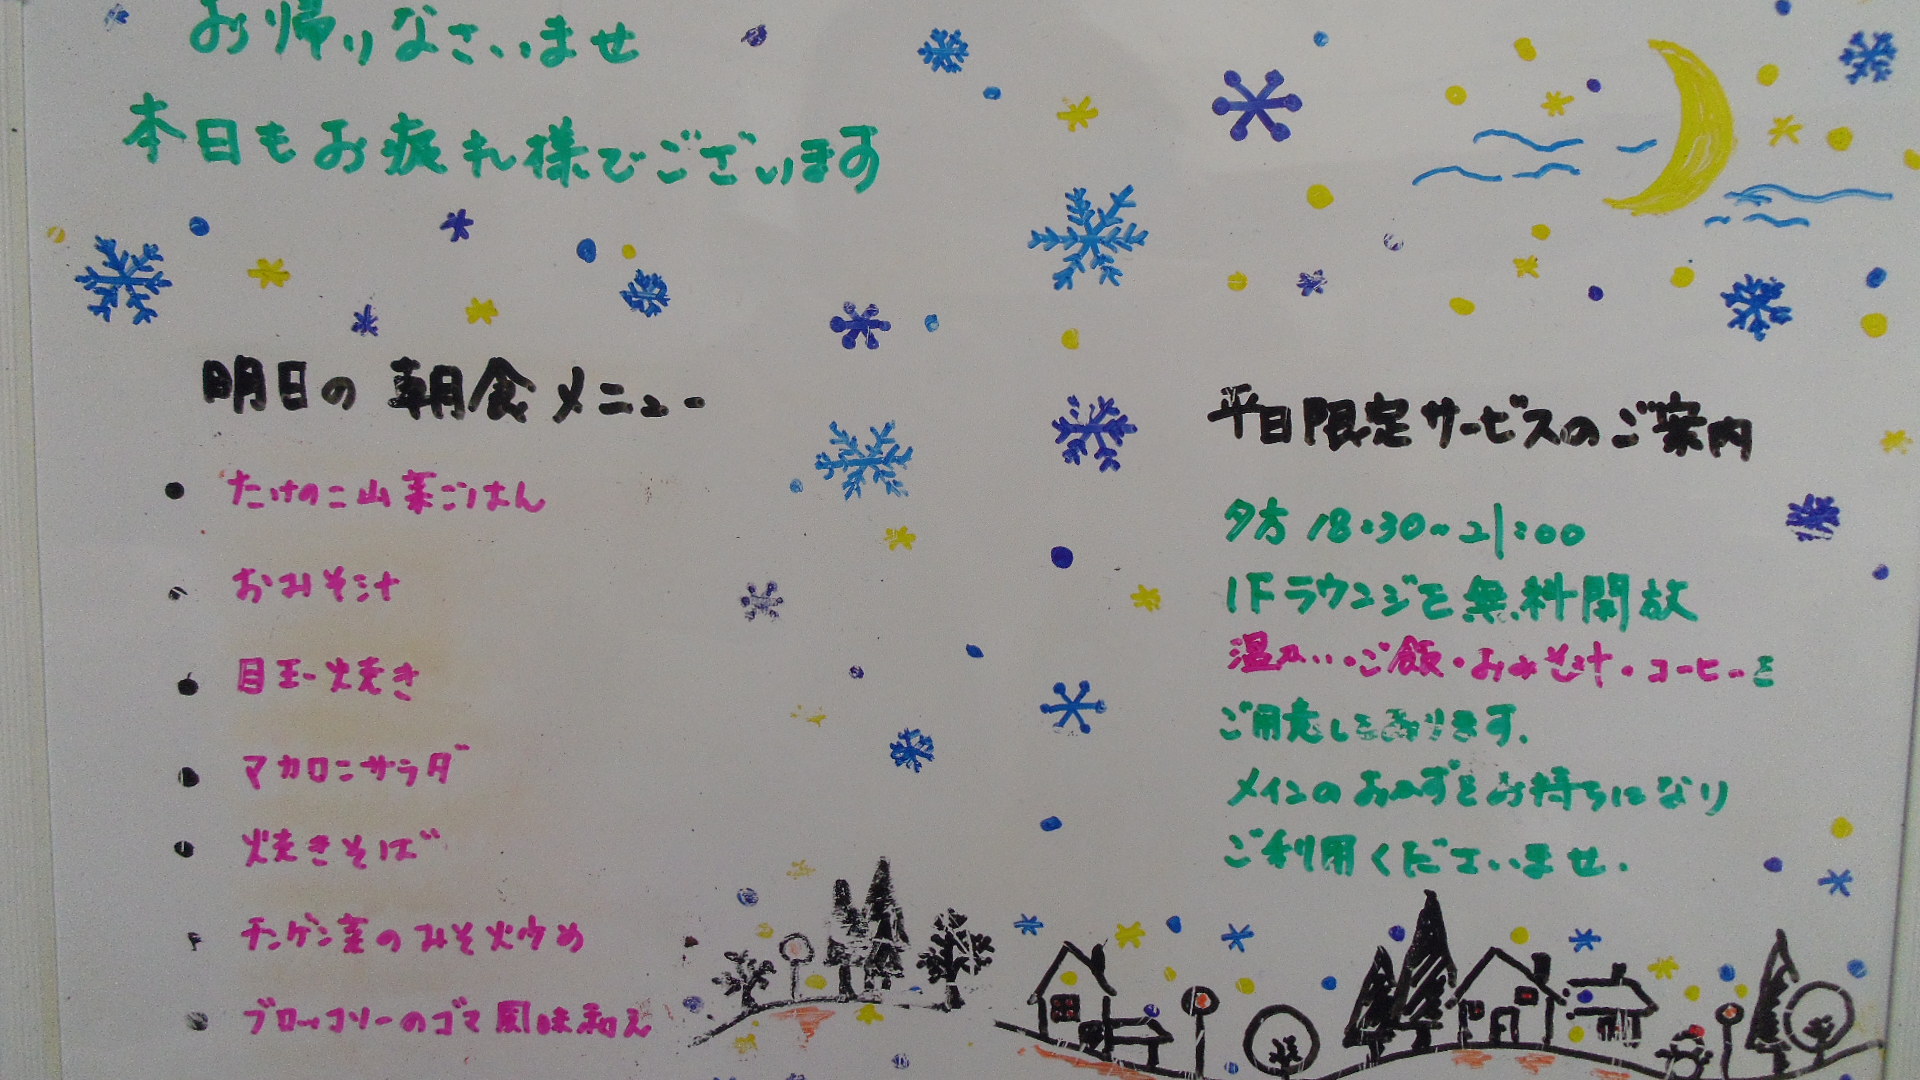 お帰りなさいませ
本日もお疲れ様でございます
明日の朝食メニュー
• たけのこ山菜ごはん
• おみそ汁
• 目玉焼き
• マカロニサラダ
• 焼きそば
• チンゲン菜のみそ炒め
• ブロッコリーのゴマ風味和え
平日限定サービスのご案内
夕方 18:30~21:00
1Fラウンジを無料開放
温かい・ご飯・おみそ汁・コーヒーを
ご用意しております.
メインのおかずをお持ちになり
ご利用くださいませ.